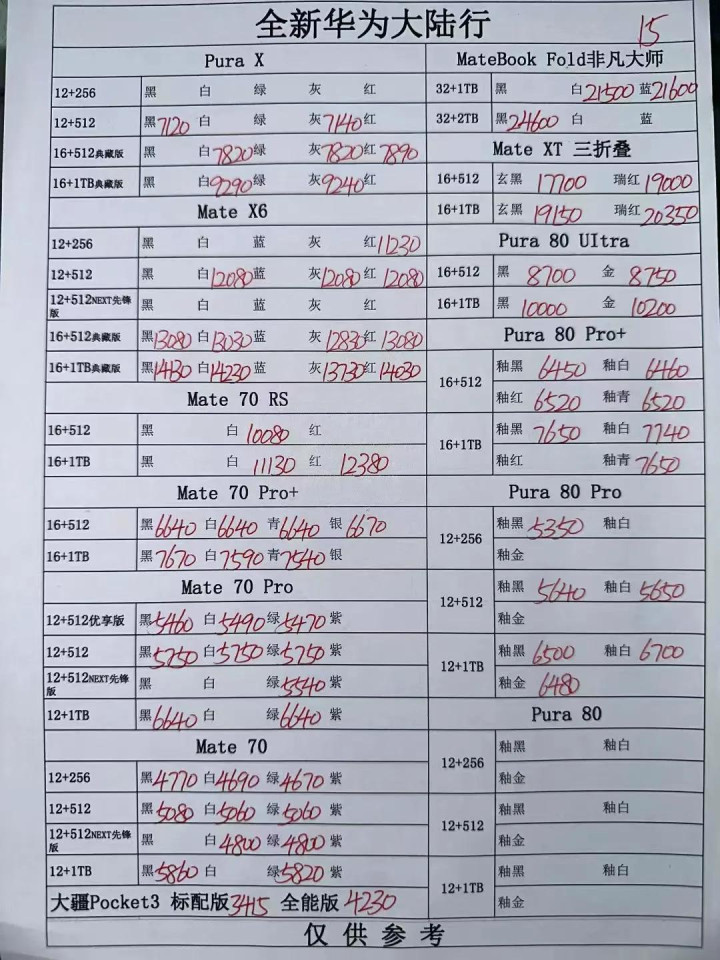 全新华为大陆行
15
Pura X
12+256 黑 白 绿 灰 红
12+512 黑7120 白 绿 灰7140 红
16+512典藏版 黑 白7820 绿 灰7820 红7890
16+1TB典藏版 黑 白9290 绿 灰9240 红
Mate X6
12+256 黑 白 蓝 灰 红11230
12+512 黑 白12080 蓝 灰12080 红12080
12+512NEXT先锋版 黑 白 蓝 灰 红
16+512典藏版 黑13080 白13030 蓝 灰12830 红13080
16+1TB典藏版 黑14130 白14230 蓝 灰13730 红14030
Mate 70 RS
16+512 黑 白10080 红
16+1TB 黑 白11130 红12380
Mate 70 Pro+
16+512 黑6640 白6640 青6640 银6670
16+1TB 黑7670 白7590 青7540 银
Mate 70 Pro
12+512优享版 黑5460 白5490 绿5470 紫
12+512 黑5750 白5750 绿5750 紫
12+512NEXT先锋版 黑 白 绿5540 紫
12+1TB 黑6640 白 绿6640 紫
Mate 70
12+256 黑4770 白4690 绿4670 紫
12+512 黑5080 白5060 绿5060 紫
12+512NEXT先锋版 黑 白4800 绿4800 紫
12+1TB 黑5860 白 绿5820 紫
大疆Pocket3 标配版3415 全能版4230
MateBook Fold非凡大师
32+1TB 黑 白21500 蓝21600
32+2TB 黑24600 白 蓝
Mate XT 三折叠
16+512 玄黑 17700 瑞红19000
16+1TB 玄黑 19150 瑞红20350
Pura 80 UItra
16+512 黑 8700 金 8750
16+1TB 黑 10000 金 10200
Pura 80 Pro+
16+512 釉黑 6450 釉白 6460
釉红 6520 釉青 6520
16+1TB 釉黑 7650 釉白 7740
釉红 釉青7650
Pura 80 Pro
12+256 釉黑5350 釉白
釉金
12+512 釉黑 5640 釉白 5650
釉金
12+1TB 釉黑 6500 釉白 6700
釉金 6480
Pura 80
12+256 釉黑 釉白
釉金
12+512 釉黑 釉白
釉金
12+1TB 釉黑 釉白
釉金
仅供参考